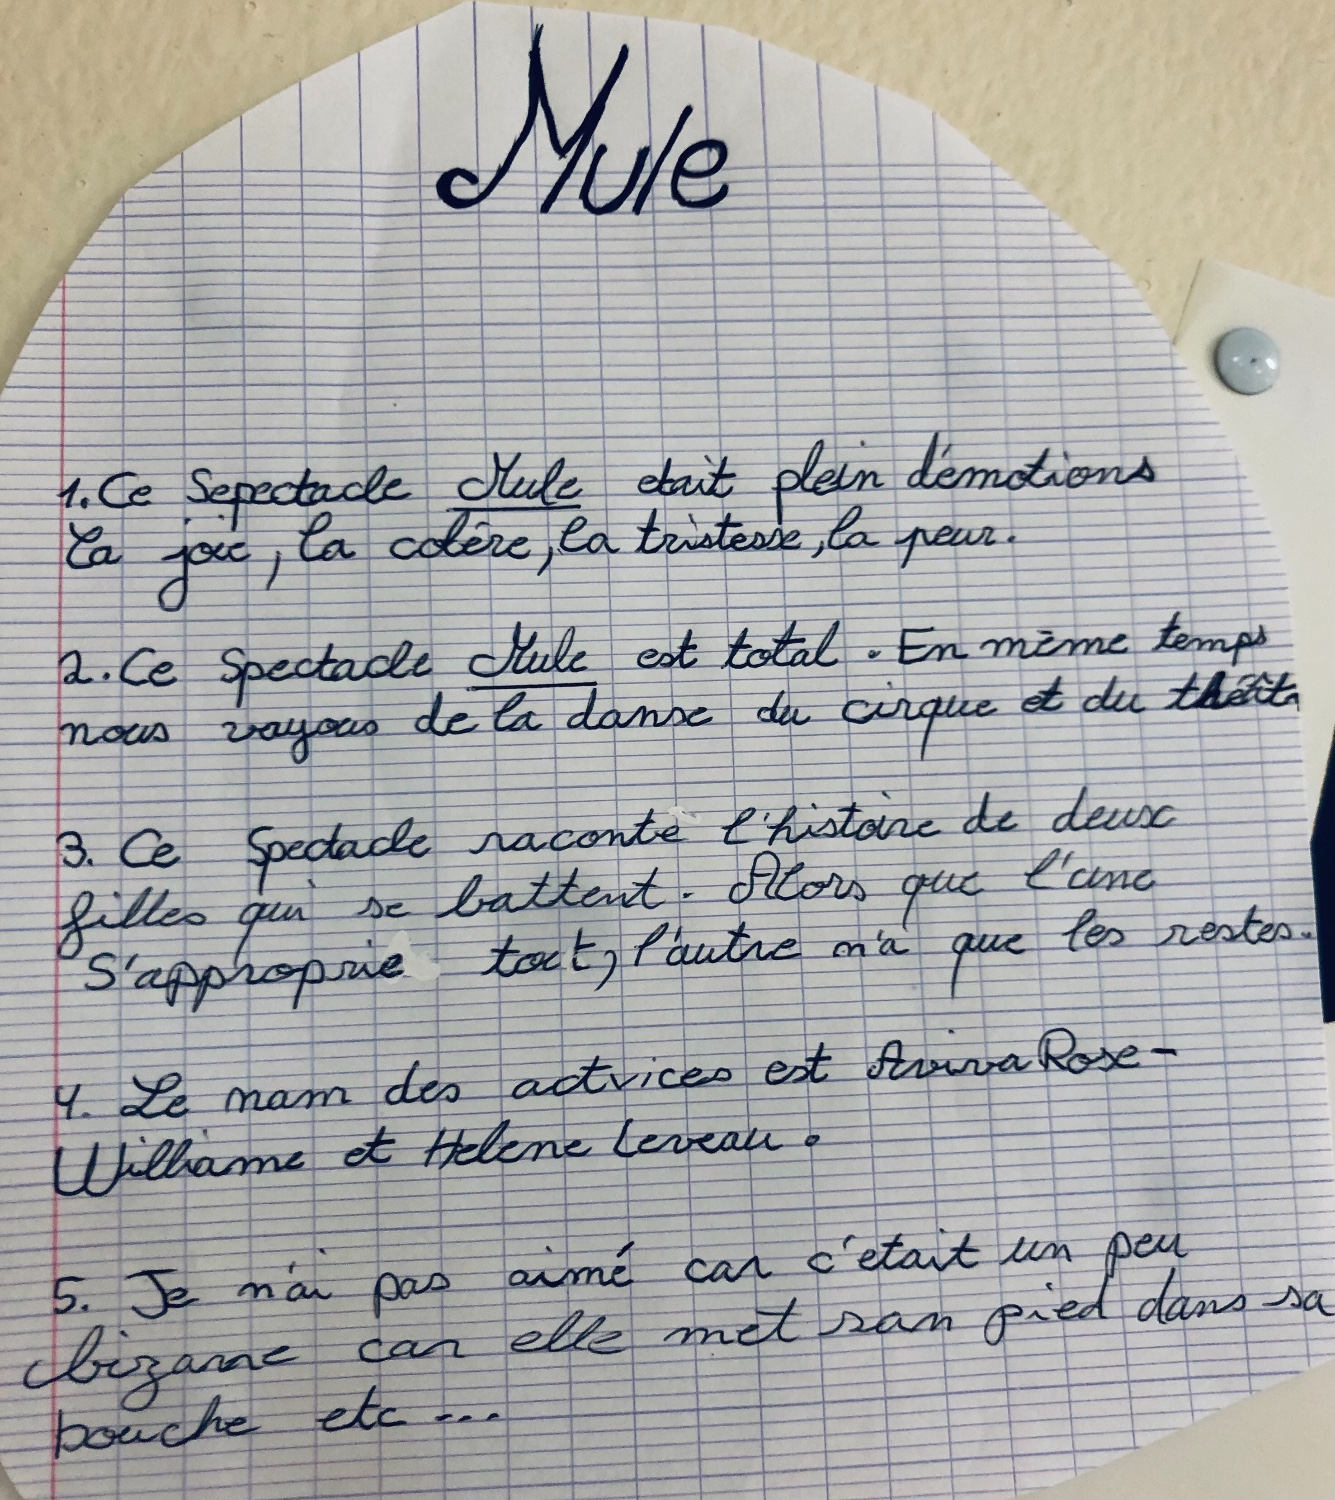 Mule
1. Ce Sepectacle Mule etait plein d'émotions
La joie, la colère, la tristesse, la peur.
2. Ce Spectacle Mule est total. En même temps
nous voyons de la danse du cirque et du théât
3. Ce Spectacle raconte l'histoire de deux
filles qui se battent. Alors que l'une
S'approprie tout, l'autre n'a que les restes.
4. Le nom des actrices est Aviva Rose-
Williame et Helene Leveau.
5. Je n'ai pas aimé car c'etait un peu
bizarre car elle met son pied dans sa
bouche etc ...